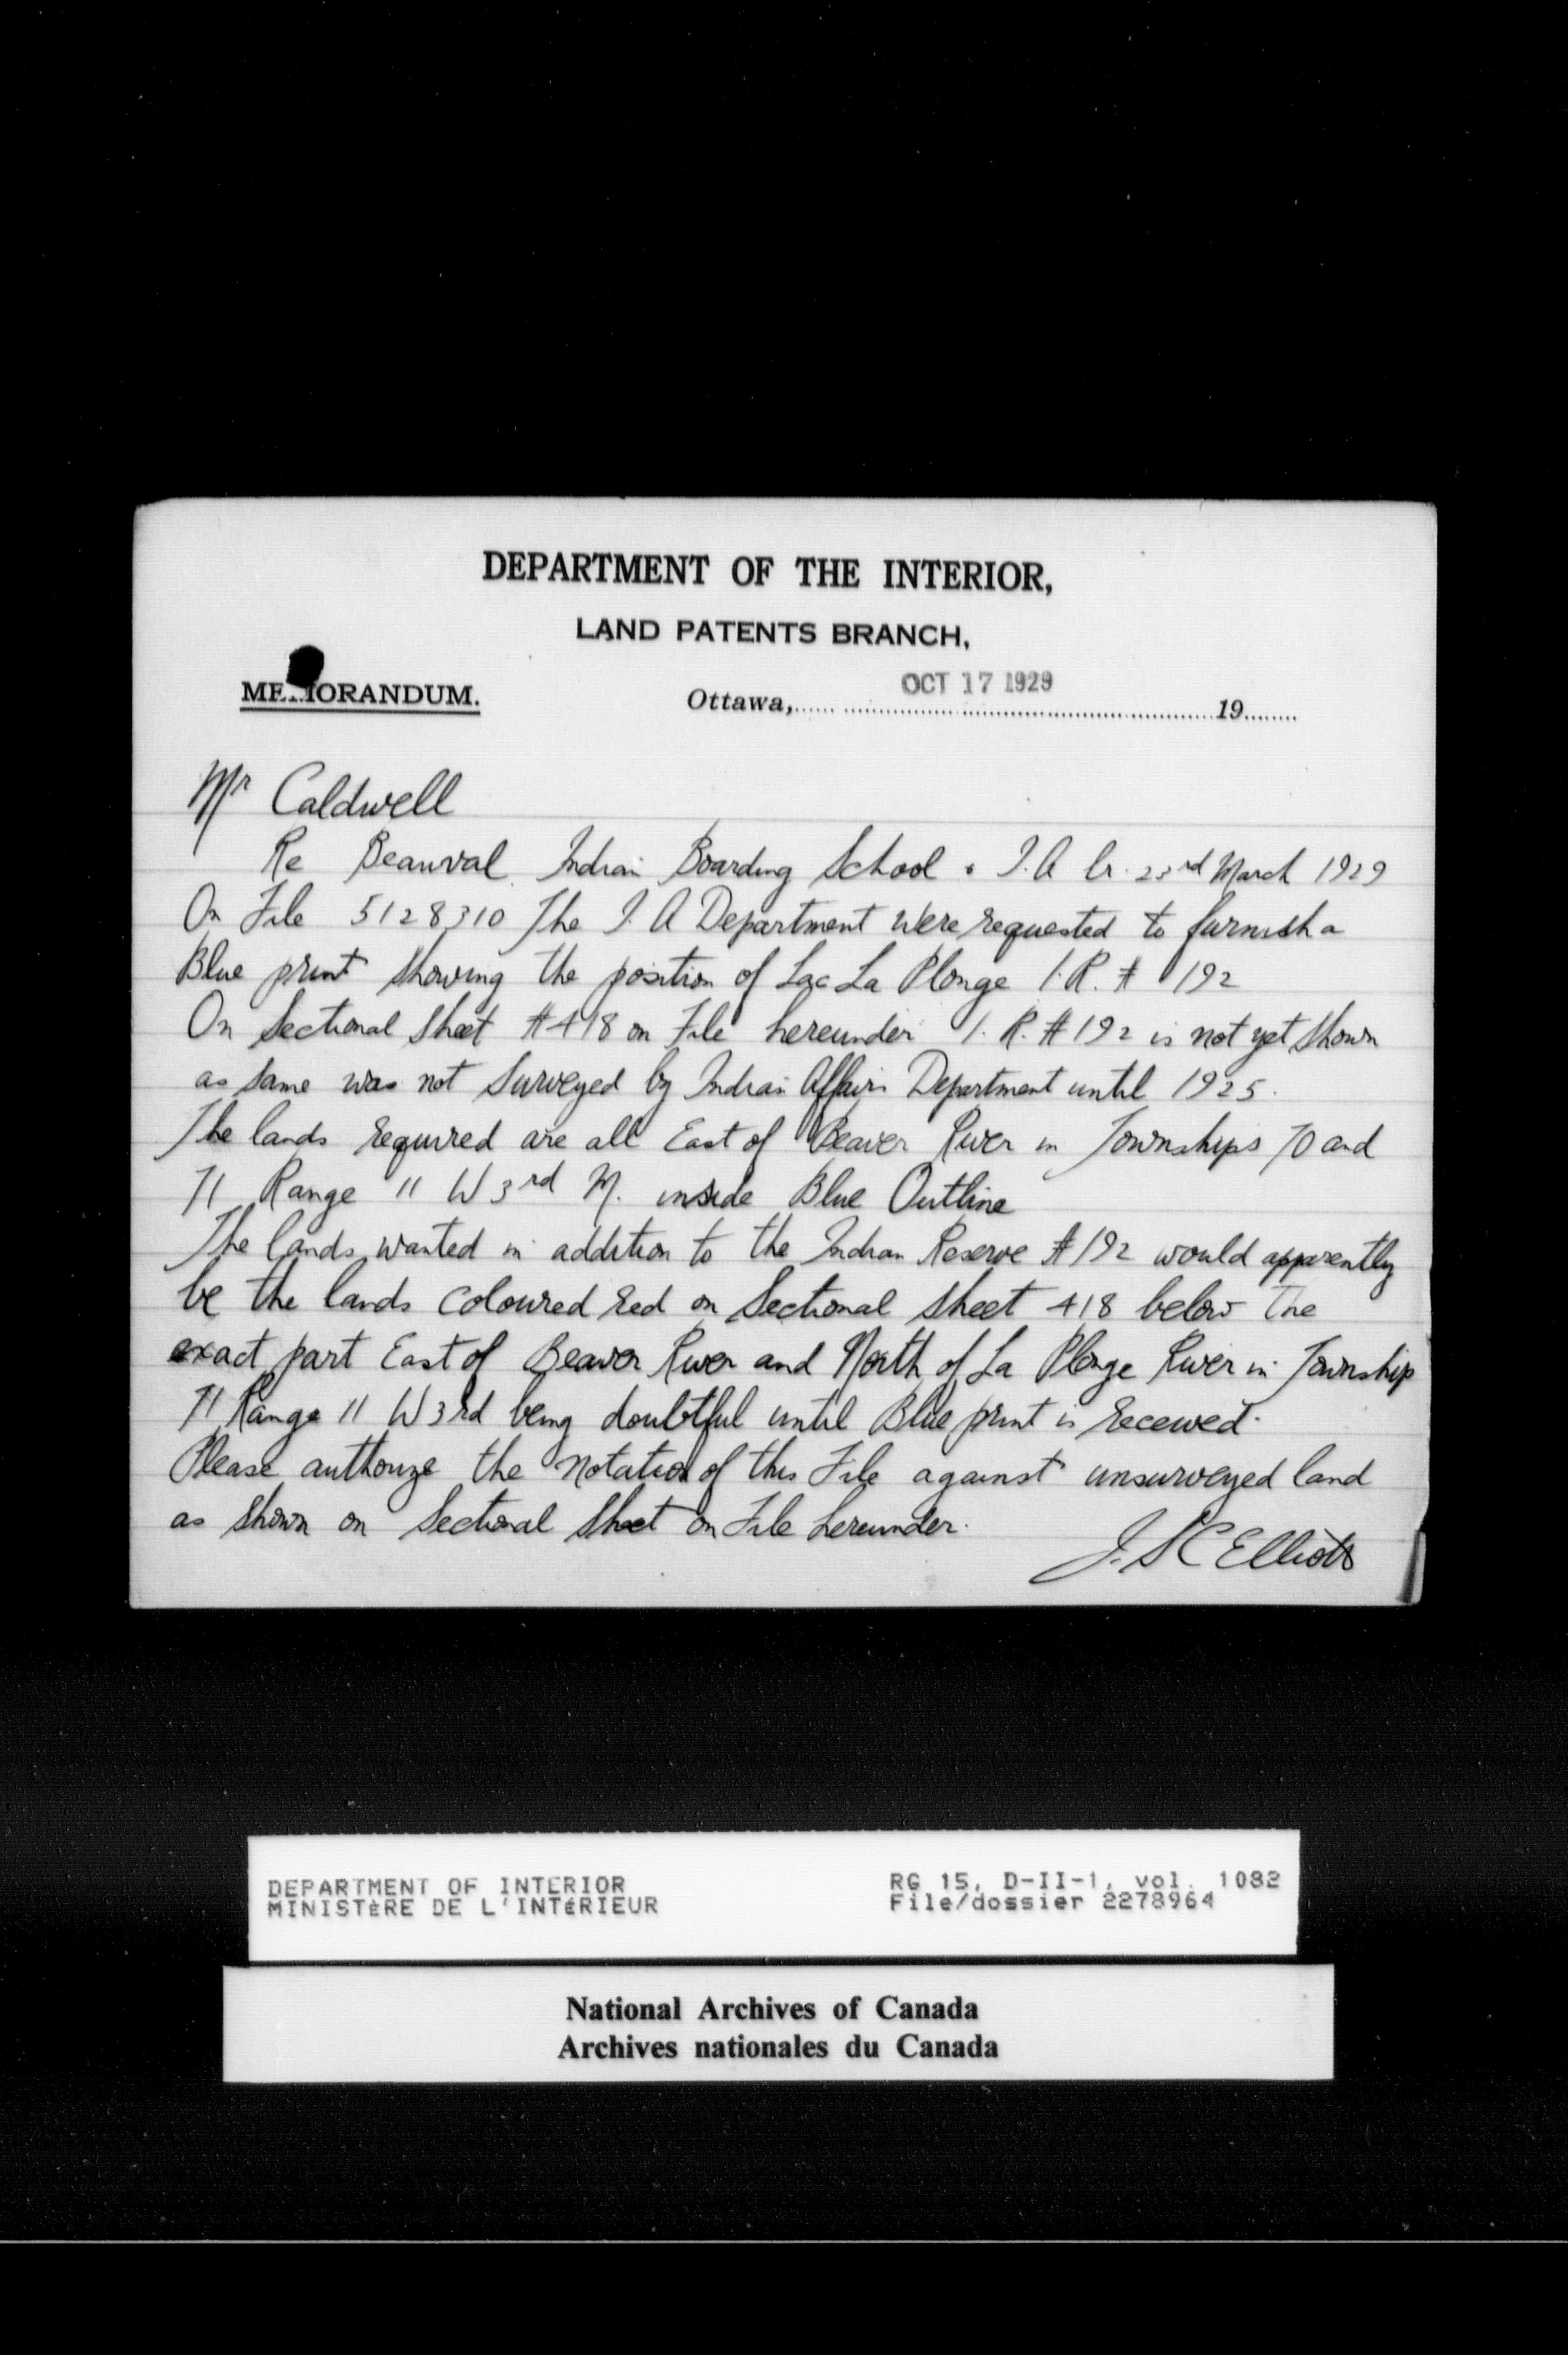 DEPARTMENT OF THE INTERIOR,
LAND PATENTS BRANCH,
MEMORANDUM.
Ottawa, OCT 17 1929 19
Mr Caldwell
Re Beauval Indian Boarding School. I.A lr. 23rd March 1929
On File 5128310 The I.A Department were requested to furnish a
Blue print showing the position of Lac La Plonge I.R. # 192
On Sectional Sheet #418 on File hereunder I.R. #192 is not yet shown
as same was not surveyed by Indian Affairs Department until 1925.
The lands required are all East of Beaver River in Townships 70 and
71 Range 11 W 3rd M. inside Blue Outline
The lands wanted in addition to the Indian Reserve #192 would apparently
be the lands coloured red on Sectional sheet 418 below The
exact part East of Beaver River and North of La Plonge River in Township
71 Range 11 W 3rd being doubtful until Blue print is received.
Please authorize the notation of this File against unsurveyed land
as shown on Sectional Sheet on File hereunder.
J.S C Elliott
DEPARTMENT OF INTERIOR
MINISTÈRE DE L'INTÉRIEUR
RG 15, D-II-1, vol. 1082
File/dossier 2278964
National Archives of Canada
Archives nationales du Canada